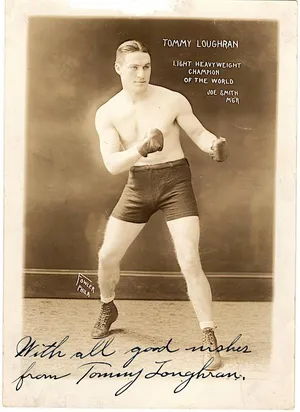 TOMMY LOUGHRAN
LIGHT HEAVYWEIGHT
CHAMPION
OF THE WORLD
JOE SMITH
MGR
FOWLER
PHILA
With all good wishes
from Tommy Loughran.